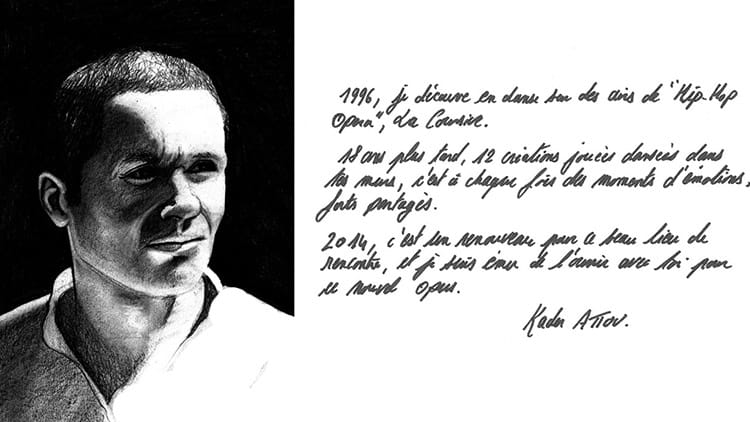 1996, je découvre en danse sur des airs de "Hip-Hop
Opéra", La Coursive.
18 ans plus tard, 12 créations jouées dansées dans
tes murs, c'est à chaque fois des moments d'émotions,
forts partagés.
2014, c'est un renouveau pour ce beau lieu de
rencontre, et je suis ému de l'ouvrir avec toi pour
ce nouvel opus.
Kader ATTOU.